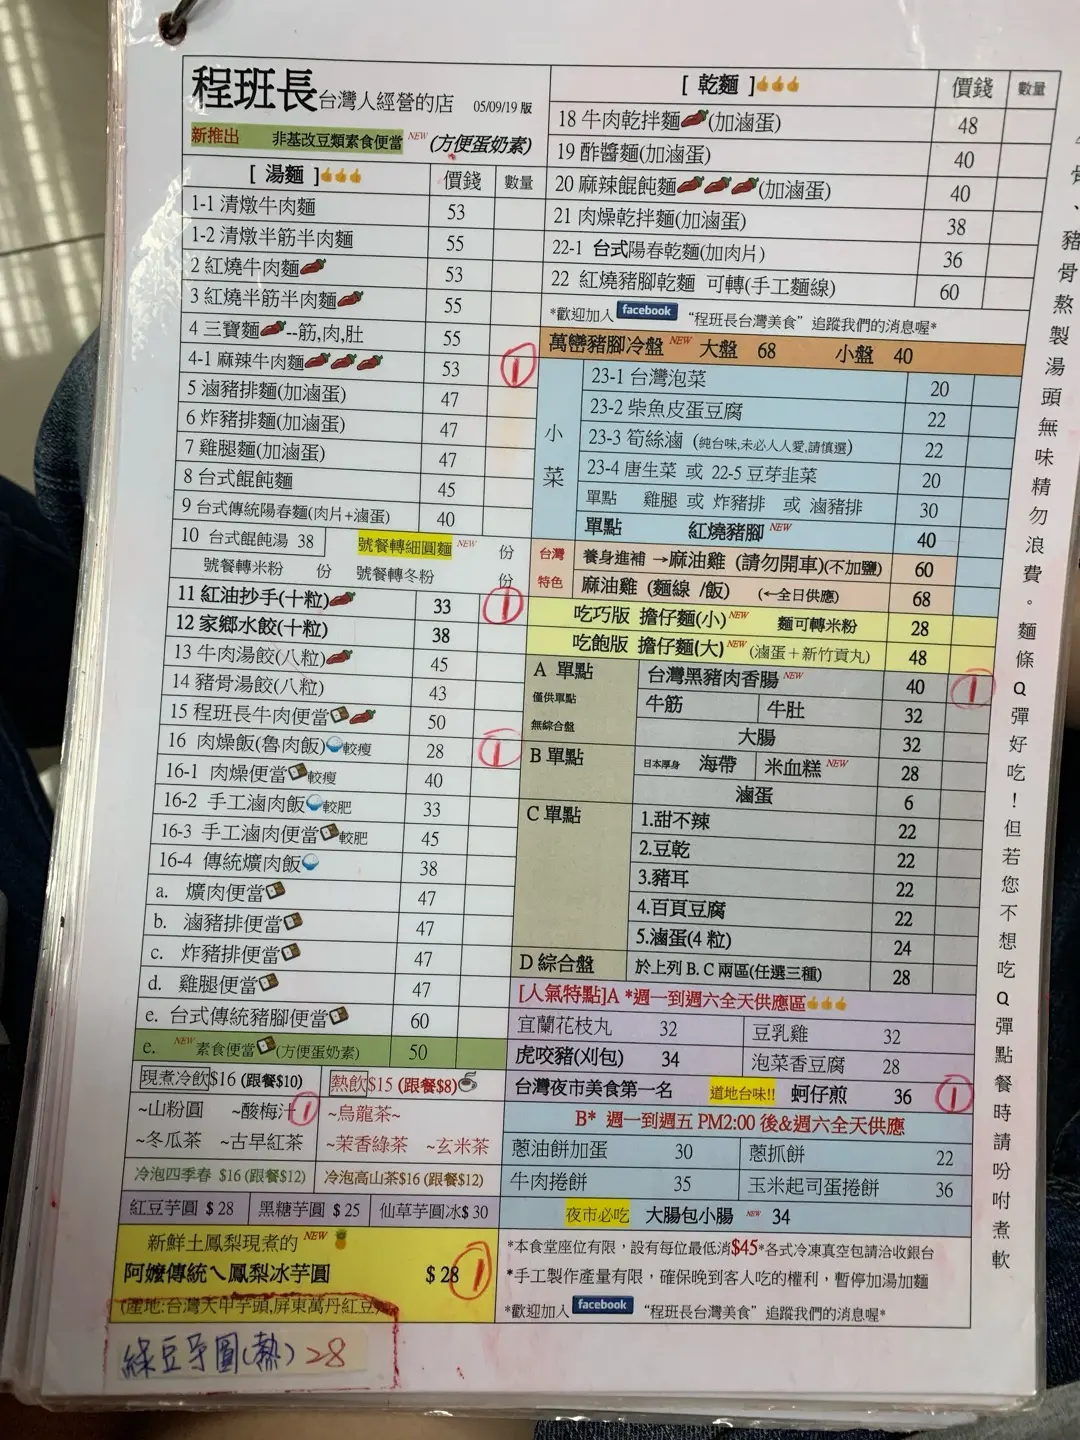 程班長台灣人經營的店 05/09/19 版
新推出 非基改豆類素食便當 NEW (方便蛋奶素)
[ 湯麵 ] 價錢 數量
1-1 清燉牛肉麵 53
1-2 清燉半筋半肉麵 55
2 紅燒牛肉麵 53
3 紅燒半筋半肉麵 55
4 三寶麵--筋,肉,肚 55
4-1 麻辣牛肉麵 53 1
5 滷豬排麵(加滷蛋) 47
6 炸豬排麵(加滷蛋) 47
7 雞腿麵(加滷蛋) 47
8 台式餛飩麵 45
9 台式傳統陽春麵(肉片+滷蛋) 40
10 台式餛飩湯 38 號餐轉細圓麵 NEW 份
號餐轉米粉 份 號餐轉冬粉 份
11 紅油抄手(十粒) 33 1
12 家鄉水餃(十粒) 38
13 牛肉湯餃(八粒) 45
14 豬骨湯餃(八粒) 43
15 程班長牛肉便當 50
16 肉燥飯(魯肉飯)較瘦 28 1
16-1 肉燥便當較瘦 40
16-2 手工滷肉飯較肥 33
16-3 手工滷肉便當較肥 45
16-4 傳統爌肉飯 38
a. 爌肉便當 47
b. 滷豬排便當 47
c. 炸豬排便當 47
d. 雞腿便當 47
e. 台式傳統豬腳便當 60
e. NEW 素食便當(方便蛋奶素) 50
現煮冷飲$16 (跟餐$10) 熱飲$15 (跟餐$8)
~山粉圓 ~酸梅汁 1 ~烏龍茶~
~冬瓜茶 ~古早紅茶 ~茉香綠茶 ~玄米茶
冷泡四季春 $16 (跟餐$12) 冷泡高山茶$16 (跟餐$12)
紅豆芋圓 $ 28 黑糖芋圓 $ 25 仙草芋圓冰$ 30
新鮮土鳳梨現煮的 NEW
阿嬤傳統ㄟ鳳梨冰芋圓 $ 28 1
(產地:台灣大甲芋頭,屏東萬丹紅豆)
綠豆芋圓(熱) 28
[ 乾麵 ] 價錢 數量
18 牛肉乾拌麵(加滷蛋) 48
19 酢醬麵(加滷蛋) 40
20 麻辣餛飩麵(加滷蛋) 40
21 肉燥乾拌麵(加滷蛋) 38
22-1 台式陽春乾麵(加肉片) 36
22 紅燒豬腳乾麵 可轉(手工麵線) 60
*歡迎加入 facebook “程班長台灣美食” 追蹤我們的消息喔*
萬巒豬腳冷盤 NEW 大盤 68 小盤 40
小菜
23-1 台灣泡菜 20
23-2 柴魚皮蛋豆腐 22
23-3 筍絲滷 (純台味,未必人人愛,請慎選) 22
23-4 唐生菜 或 22-5 豆芽韭菜 20
單點 雞腿 或 炸豬排 或 滷豬排 30
單點 紅燒豬腳 NEW 40
台灣特色
養身進補 →麻油雞 (請勿開車)(不加鹽) 60
麻油雞 (麵線 /飯) (←全日供應) 68
吃巧版 擔仔麵(小) NEW 麵可轉米粉 28
吃飽版 擔仔麵(大) NEW (滷蛋＋新竹貢丸) 48
A 單點 台灣黑豬肉香腸 NEW 40 1
僅供單點 牛筋 牛肚 32
無綜合盤 大腸 32
B 單點 日本厚身 海帶 米血糕 NEW 28
滷蛋 6
C 單點 1.甜不辣 22
2.豆乾 22
3.豬耳 22
4.百頁豆腐 22
5.滷蛋(4 粒) 24
D 綜合盤 於上列 B. C 兩區(任選三種) 28
[人氣特點]A *週一到週六全天供應區
宜蘭花枝丸 32 豆乳雞 32
虎咬豬(刈包) 34 泡菜香豆腐 28
台灣夜市美食第一名 道地台味!! 蚵仔煎 36 1
B* 週一到週五 PM2:00 後&週六全天供應
蔥油餅加蛋 30 蔥抓餅 22
牛肉捲餅 35 玉米起司蛋捲餅 36
夜市必吃 大腸包小腸 NEW 34
*本食堂座位有限，設有每位最低消$45*各式冷凍真空包請洽收銀台
*手工製作產量有限，確保晚到客人吃的權利，暫停加湯加麵
*歡迎加入 facebook “程班長台灣美食” 追蹤我們的消息喔*
骨、豬骨熬製湯頭無味精勿浪費。麵條Q彈好吃！但若您不想吃Q彈點餐時請吩咐煮軟